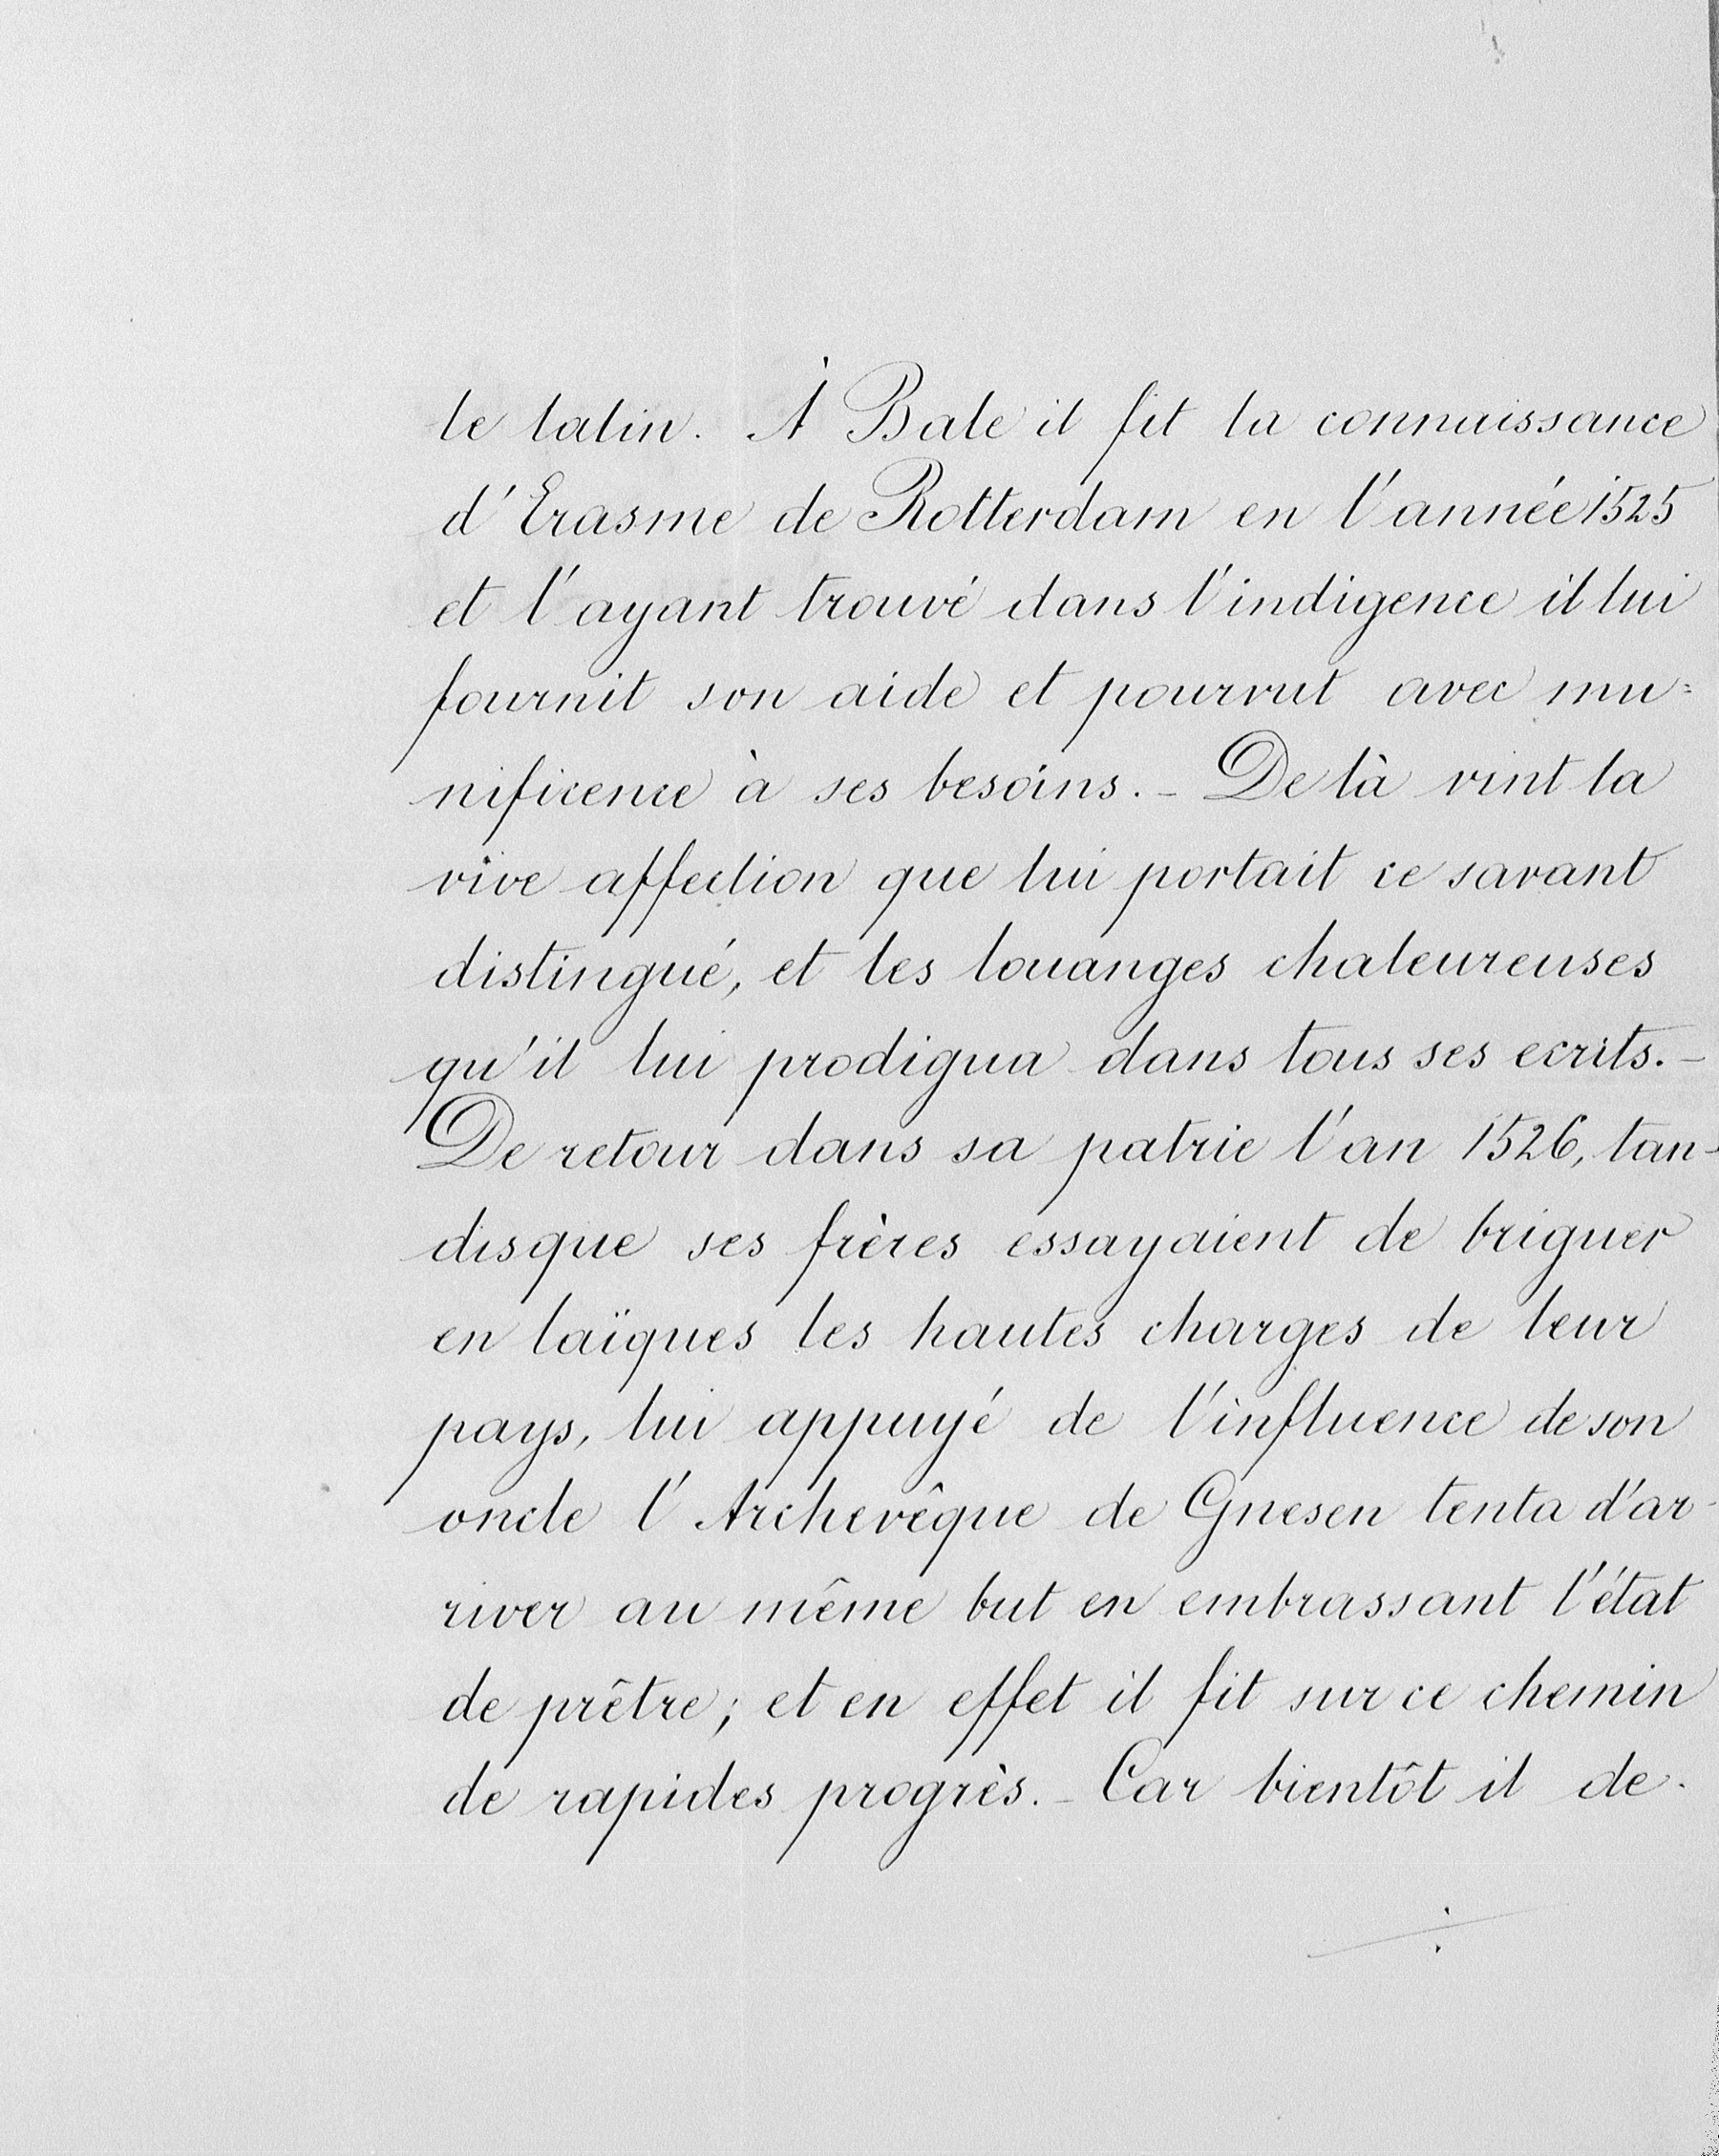 le latin. À Bale il fit la connaissance
d'Erasme de Rotterdam en l'année 1525
et l'ayant trouvé dans l'indigence il lui
fournit son aide et pourvut avec mu=
nificence à ses besoins. - De là vint la
vive affection que lui portait ce savant
distingué, et les louanges chaleureuses
qu'il lui prodigua dans tous ses ecrits. -
De retour dans sa patrie l'an 1526, tan-
disque ses frères essayaient de briguer
en laïques les hautes charges de leur
pays, lui appuyé de l'influence de son
oncle l'Archevêque de Gnesen tenta d'ar-
river au même but en embrassant l'état
de prêtre; et en effet il fit sur ce chemin
de rapides progrès. - Car bientôt il de-